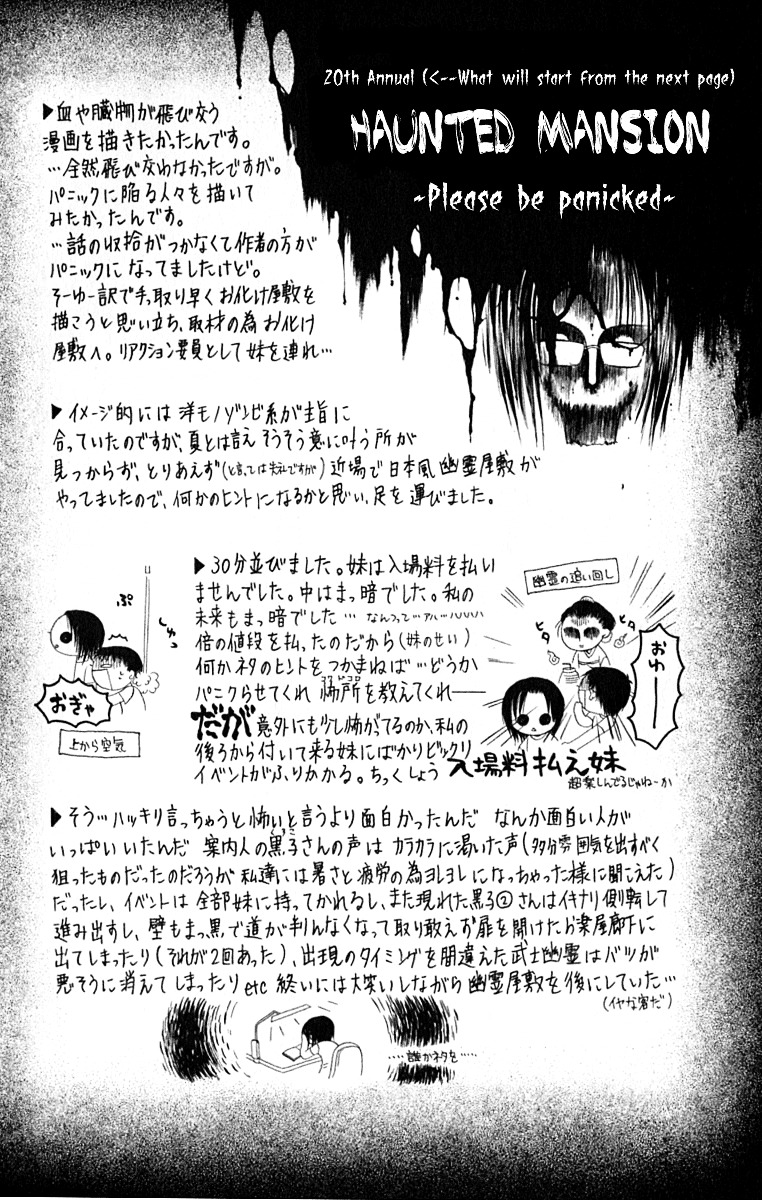 20th Annual (<--What will start from the next page)
HAUNTED MANSION
~Please be panicked~
▶血や臓物が飛び交う
漫画を描きたかったんです。
…全然飛び交わなかったですが。
パニックに陥る人々を描いて
みたかったんです。
…話の収拾がつかなくて作者の方が
パニックになってましたけど。
そーゆー訳で手っ取り早くお化け屋敷を
描こうと思い立ち、取材の為お化け
屋敷へ。リアクション要員として妹を連れ…
▶イメージ的には洋モノゾンビ系が主旨に
合っていたのですが、夏とは言えそうそう意に叶う所が
見つからず、とりあえず(と言っては失礼ですが)近場で日本風幽霊屋敷が
やってましたので、何かのヒントになるかと思い、足を運びました。
▶30分並びました。妹は入場料を払い
ませんでした。中はまっ暗でした。私の
未来もまっ暗でした…なんつって…アハ…ハハハハ
倍の値段を払ったのだから(妹のせい)
何かネタのヒントをつかまねば…どうか
パニクらせてくれ 怖所を教えてくれ――
だが意外にも少し怖がってるのか、私の
後ろから付いて来る妹にばかりビックリ
イベントがふりかかる。ちっくしょう 入場料払え妹
超楽しんでるじゃねーか
ぷ
しゅっ
おぎゃ
上から空気
幽霊の追い回し
ヒタ
ヒタ
おわーー
▶そう…ハッキリ言っちゃうと怖いと言うより面白かったんだ なんか面白い人が
いっぱいいたんだ 案内人の黒子さんの声はカラカラに渇いた声(多分雰囲気を出すべく
狙ったものだったのだろうが私達には暑さと疲労の為ヨレヨレになっちゃった様に聞こえた)
だったし、イベントは全部妹に持ってかれるし、また現れた黒子②さんはイキナリ側転して
進み出すし、壁もまっ黒で道が判んなくなって取り敢えず扉を開けたら楽屋廊下に
出てしまったり(それが2回あった)、出現のタイミングを間違えた武士幽霊はバツが
悪そうに消えてしまったりetc 終いには大笑いしながら幽霊屋敷を後にしていた…
(イヤな客だ)
……誰かネタを……